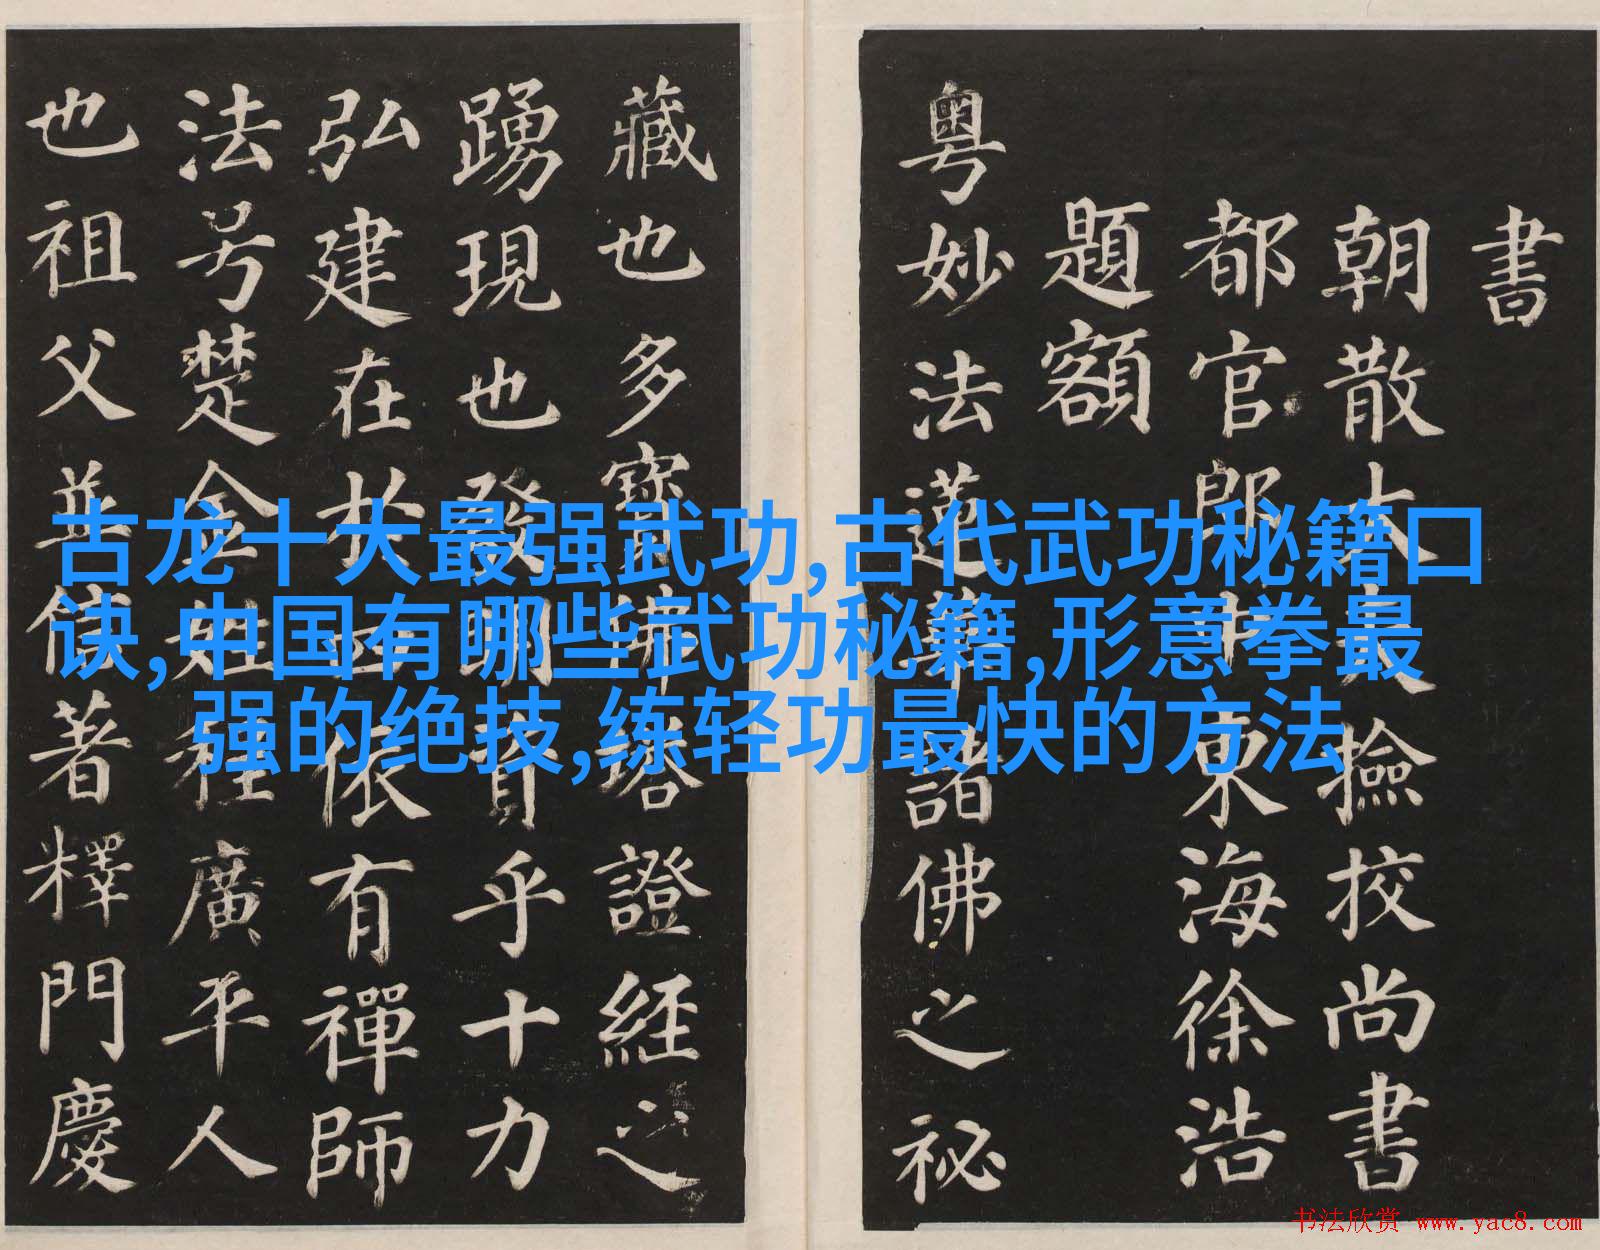 書
朝散大夫撿挍尚書
都官郎中東海徐浩
題額
粵妙法蓮華諸佛之祕
藏也多寶佛塔證經之
踴現也發明資乎十力
弘建在於四依有禪師
法号楚金姓程廣平人
也祖父並信著釋門慶
古龙十大最强武功,古代武功秘籍口
诀,中国有哪些武功秘籍,形意拳最
强的绝技,练轻功最快的方法
书法欣赏 www.yac8.com